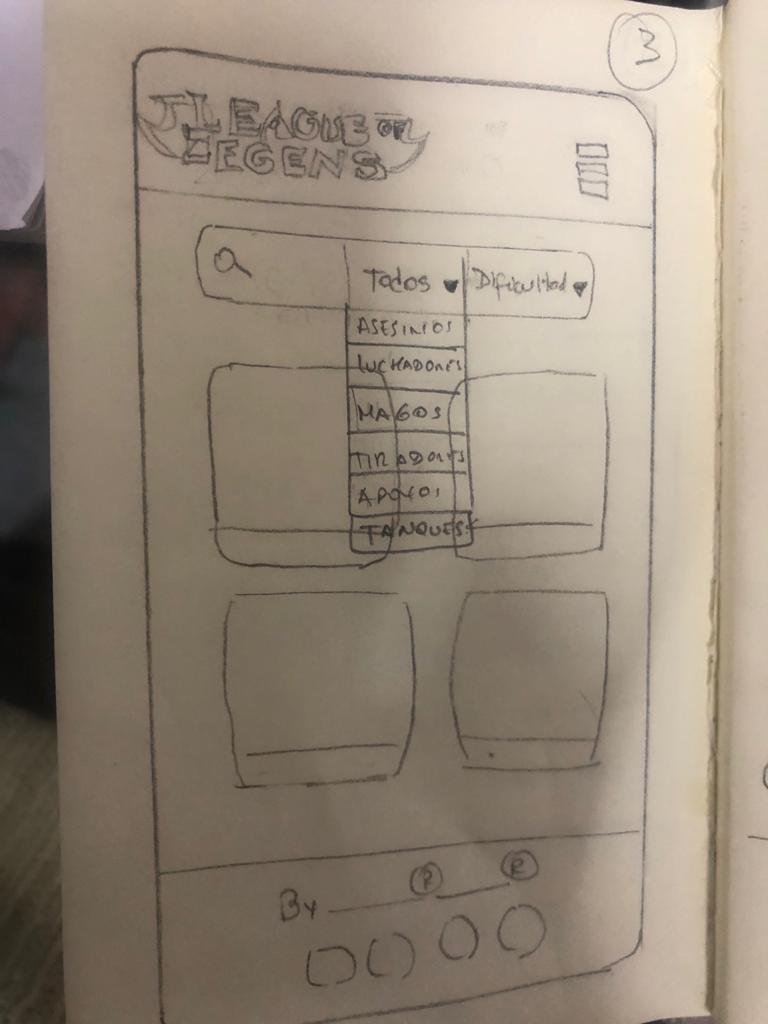 3
LEAGUE OF
LEGENS
Todos Dificultad
ASESINOS
LUCHADORES
MAGOS
TIRADORES
APOYOS
TANQUES
By R R